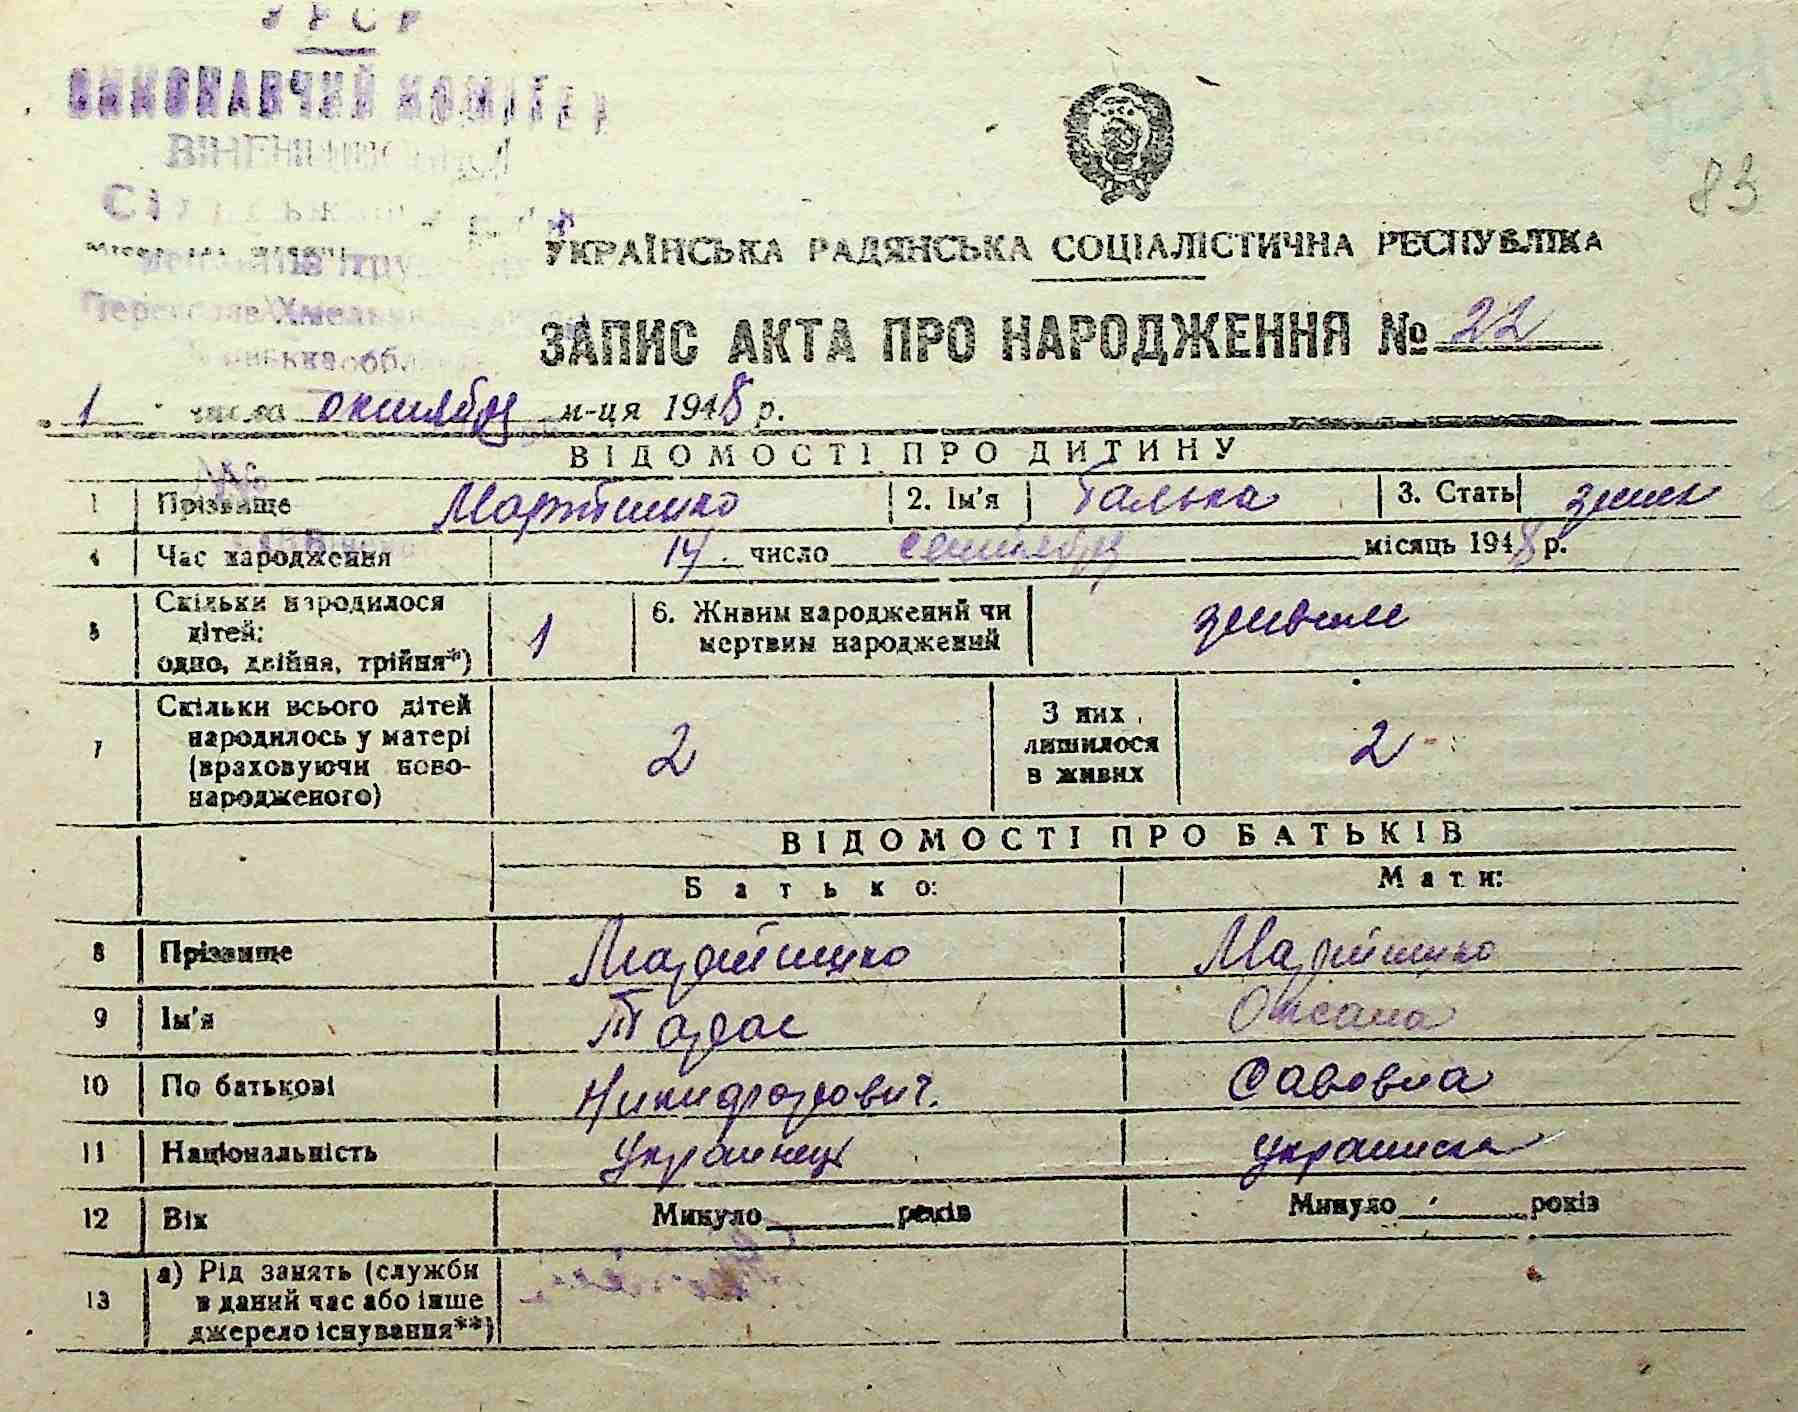 УРСР
ВИКОНАВЧИЙ КОМІТЕТ
83
УКРАЇНСЬКА РАДЯНСЬКА СОЦІАЛІСТИЧНА РЕСПУБЛІКА
ЗАПИС АКТА ПРО НАРОДЖЕННЯ № 22
1 числа октября м-ця 1948 р.
ВІДОМОСТІ ПРО ДИТИНУ
1 Прізвище 2. Ім'я Галька 3. Стать женск
4 Час народження 14 число сентября місяць 1948 р.
5 Скільки народилося дітей: одно, двійня, трійня*) 1 6. Живим народжений чи мертвим народжений живым
7 Скільки всього дітей народилось у матері (враховуючи ново-народженого) 2 З них лишилося в живих 2
ВІДОМОСТІ ПРО БАТЬКІВ
Батько: Мати:
8 Прізвище
9 Ім'я Тарас Оксана
10 По батькові Никифорович. Савовна
11 Національність Украинец украинка
12 Вік Минуло років Минуло років
13 а) Рід занять (служби в даний час або інше джерело існування**)